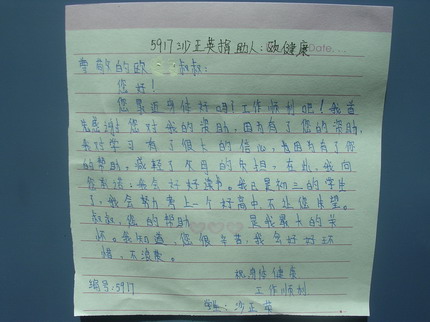 5917 沙正英捐助人：欧健康
Date...
尊敬的欧 叔叔：
您好！
您最近身体好吗？工作顺利吧！我首
先感谢您对我的资助，因为有了您的资助，
我对学习有了很大的信心，也因为有了您
的帮助，减轻了父母的负担，在此，我向
您承诺：我会好好读书。我已是初三的学生
了，我会努力考上一个好高中，不让您失望。
叔叔，您的帮助 是我最大的关
怀。我知道，您很辛苦，我会好好珍
惜，不浪费。
祝身体健康
编号：5917 工作顺利
沙正英